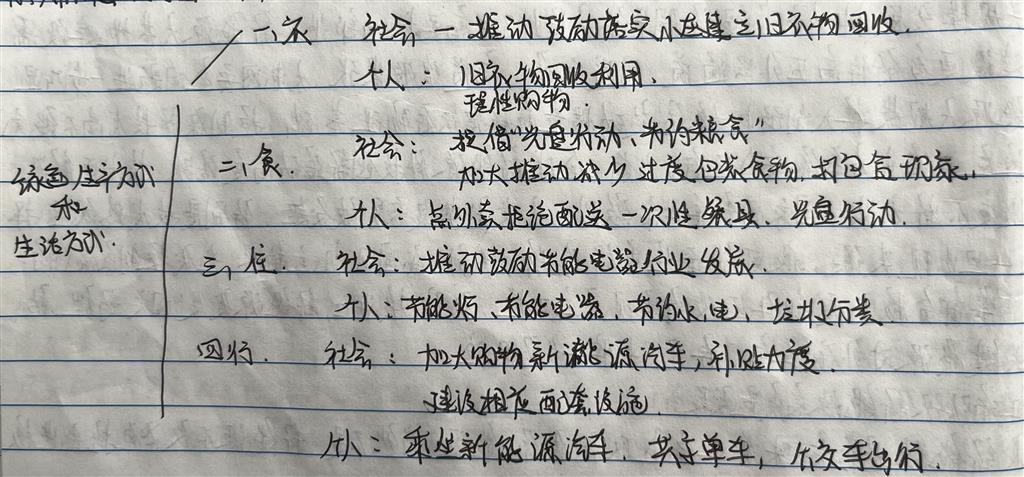 一、衣 社会 — 推动鼓励落实小区建立旧衣物回收.
个人: 旧衣物回收利用.
理性购物.
社会: 提倡"光盘行动、节约粮食"
二、食. 加大推动减少过度包装食物, 打包合理
个人: 点外卖拒绝配送一次性餐具、光盘行动.
绿色生产方式
和
生活方式.
三、住. 社会: 推动鼓励节能电器行业发展.
个人: 节能灯、节能电器, 节约水, 电, 垃圾分类
四行. 社会: 加大购物新能源汽车, 补贴力度.
建设相应配套设施.
个人: 乘坐新能源汽车. 共享单车, 公交车出行.